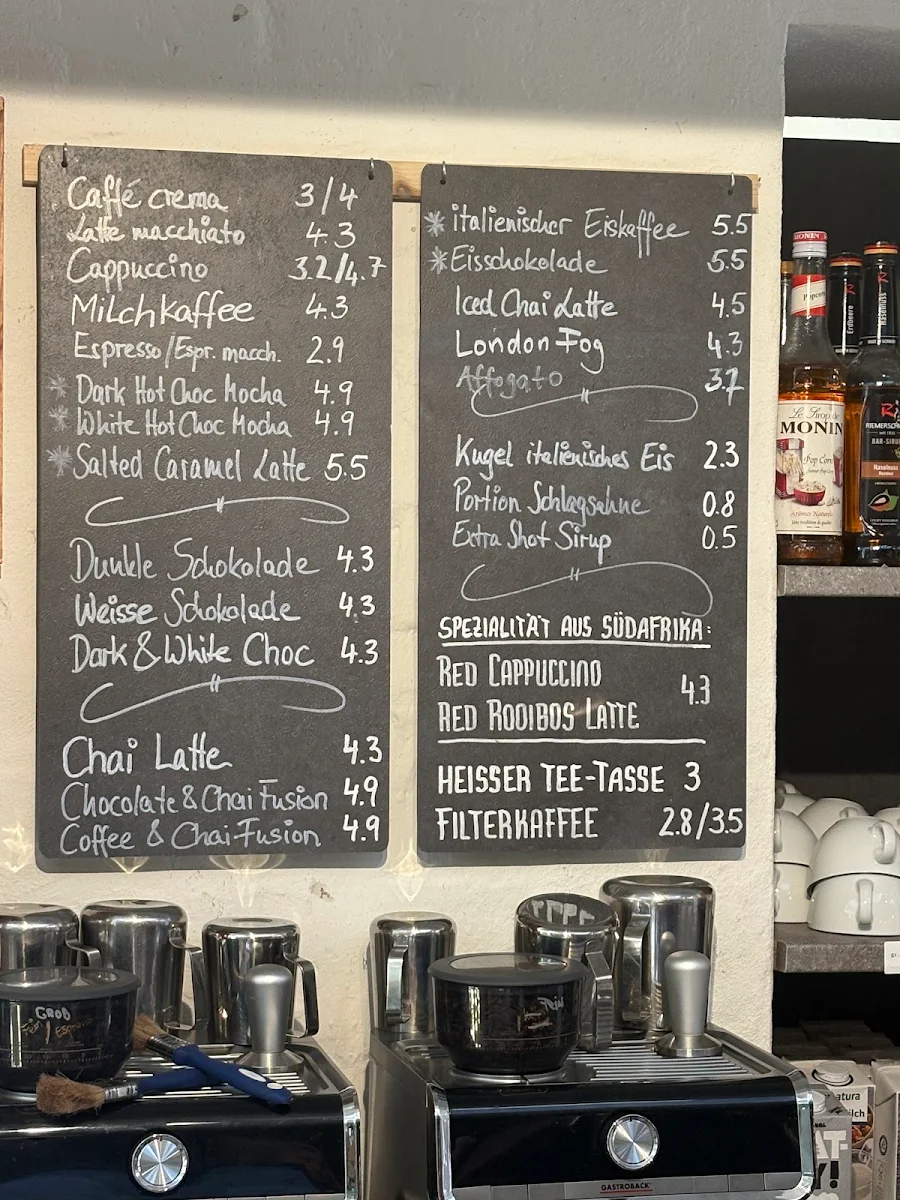 Caffé crema 3/4
Latte macchiato 4.3
Cappuccino 3.2/4.7
Milchkaffee 4.3
Espresso/Espr. macch. 2.9
* Dark Hot Choc Mocha 4.9
* White Hot Choc Mocha 4.9
* Salted Caramel Latte 5.5
Dunkle Schokolade 4.3
Weisse Schokolade 4.3
Dark & White Choc 4.3
Chai Latte 4.3
Chocolate & Chai Fusion 4.9
Coffee & Chai-Fusion 4.9
* italienischer Eiskaffee 5.5
* Eisschokolade 5.5
Iced Chai Latte 4.5
London Fog 4.3
Affogato 3.7
Kugel italienisches Eis 2.3
Portion Schlagsahne 0.8
Extra Shot Sirup 0.5
SPEZIALITÄT AUS SÜDAFRIKA:
RED CAPPUCCINO
4.3
RED ROOIBOS LATTE
HEISSER TEE-TASSE 3
FILTERKAFFEE 2.8/3.5
MONIN
Le Sirop de
MONIN
Pop Corn
Erdbeere
Haselnuss
R
RIEMERSCHMID
BAR-SIRUP
Haselnuss
GROB
GASTROBACK